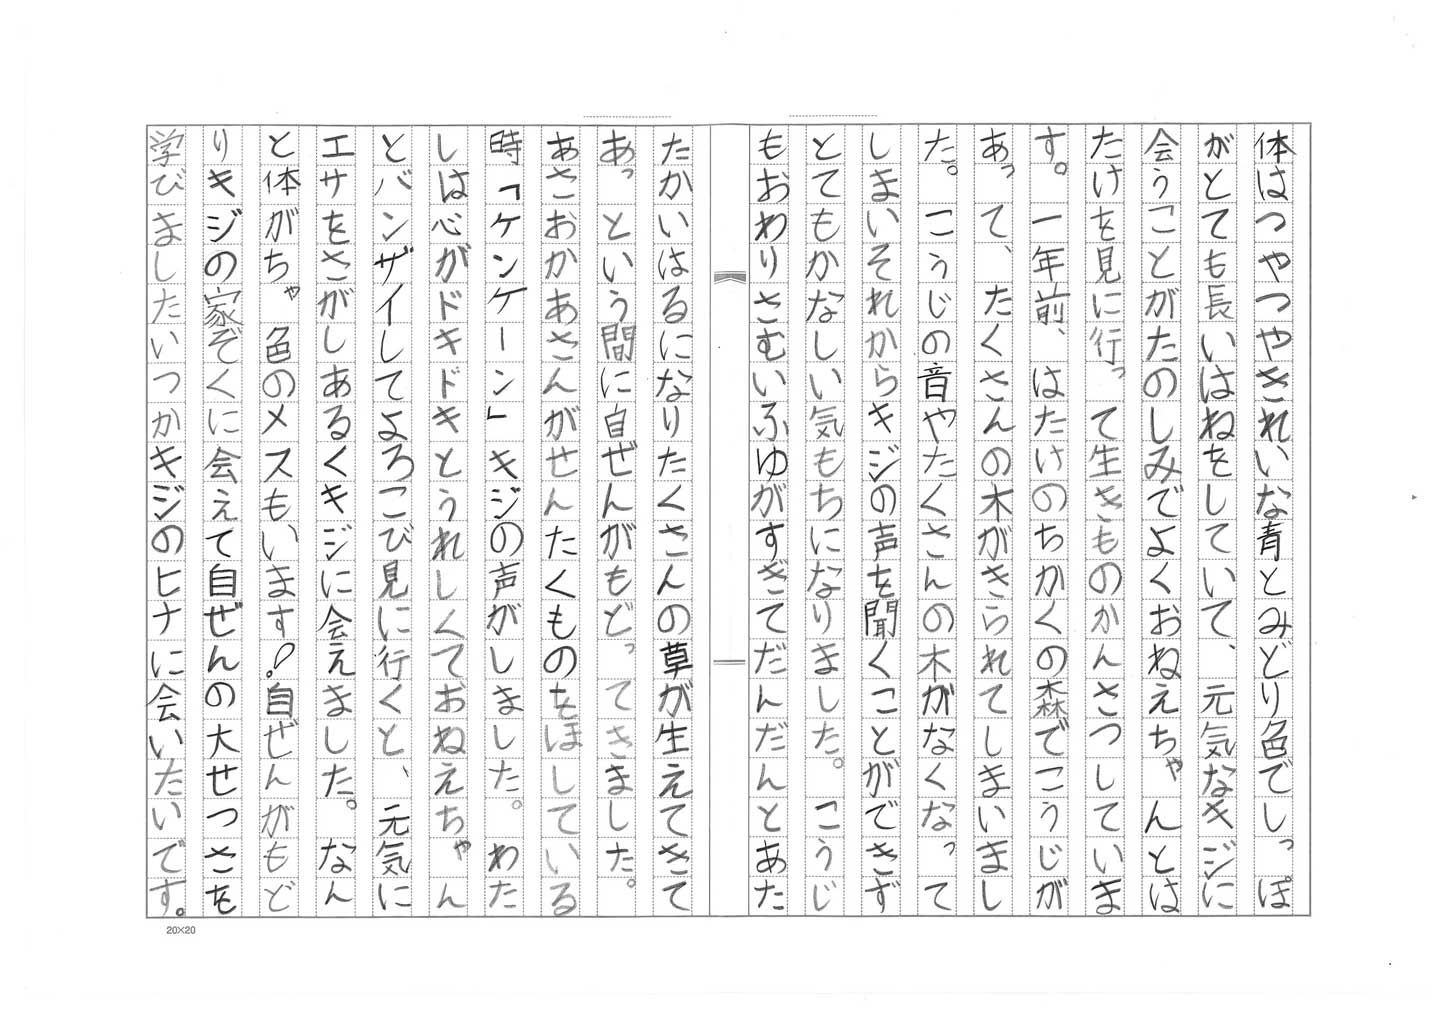 体はつやつやきれいな青とみどり色でしっぽ
がとても長いはねをしていて、元気なキジに
会うことがたのしみでよくおねえちゃんとは
たけを見に行って生きものかんさつしていま
す。一年前、はたけのちかくの森でこうじが
あって、たくさんの木がきられてしまいまし
た。こうじの音やたくさんの木がなくなって
しまいそれからキジの声を聞くことができず
とてもかなしい気もちになりました。こうじ
もおわりさむいふゆがすぎてだんだんとあた
たかいはるになりたくさんの草が生えてきて
あっという間に自ぜんがもどってきました。
あさおかあさんがせんたくものをほしている
時「ケンケーン」キジの声がしました。わた
しは心がドキドキとうれしくておねえちゃん
とバンザイしてよろこび見に行くと、元気に
エサをさがしあるくキジに会えました。なん
と体がちゃ色のメスもいます！自ぜんがもど
りキジの家ぞくに会えて自ぜんの大せつさを
学びましたいつかキジのヒナに会いたいです。
20×20